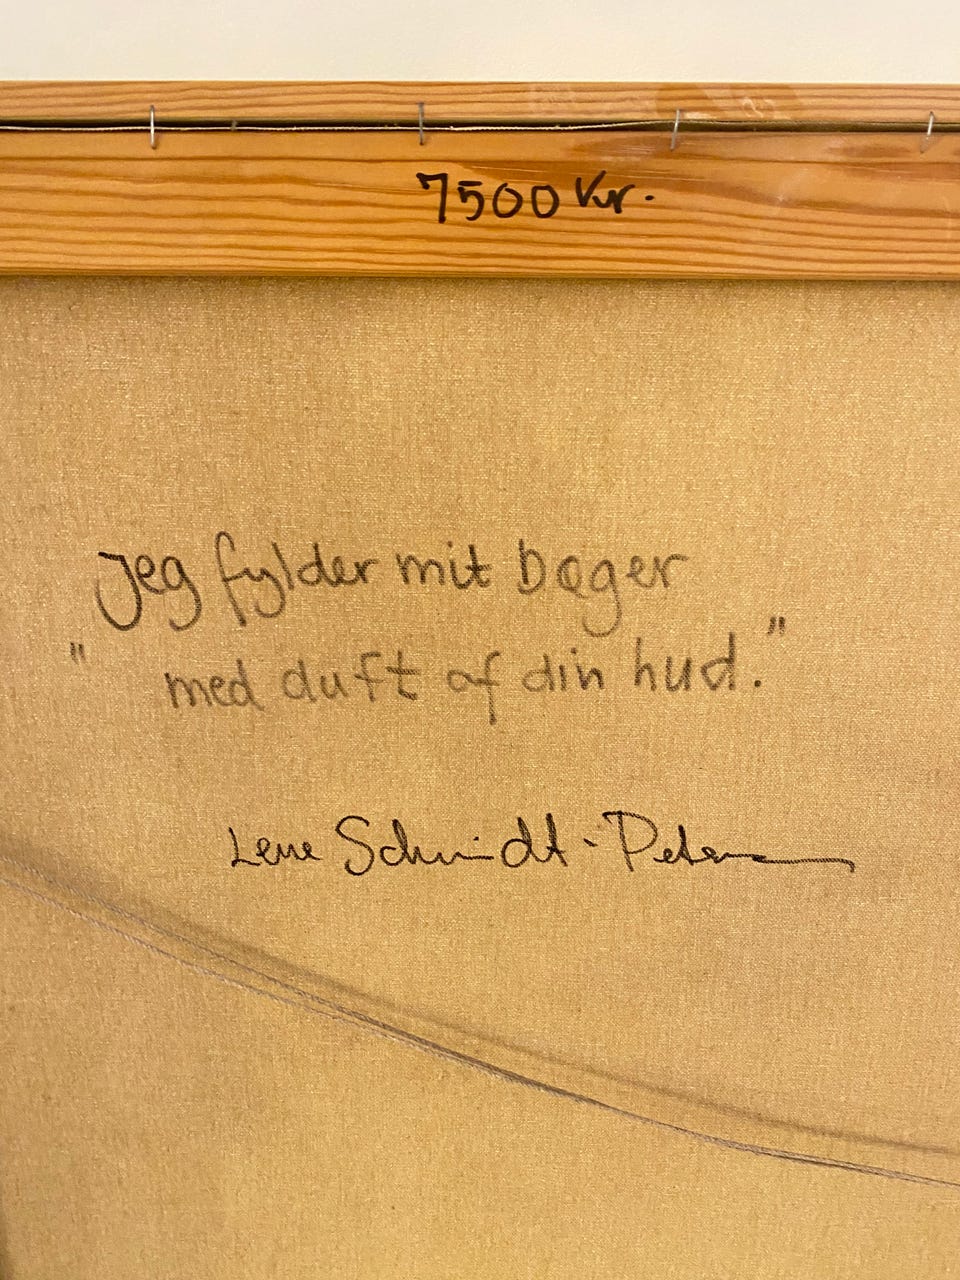 7500 Kr.
Jeg fylder mit bæger
" med duft af din hud."
Lene Schmidt-Petersen